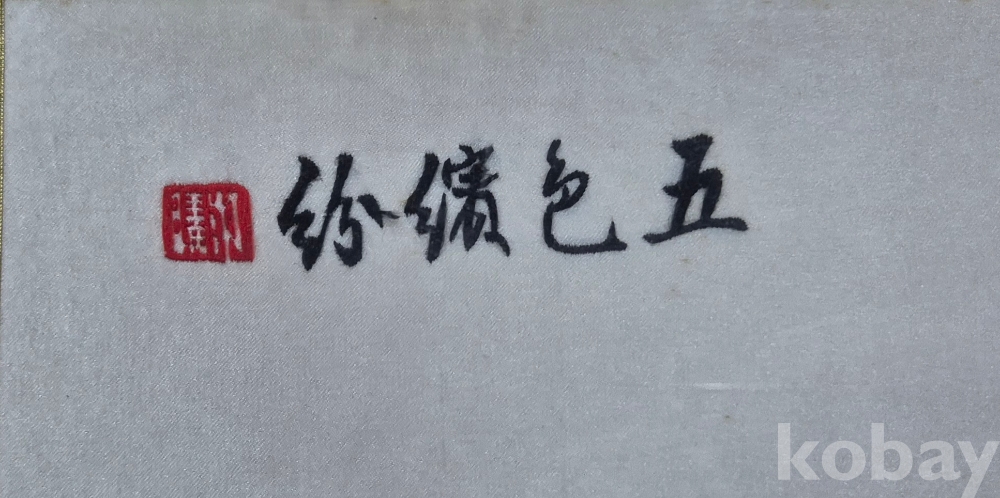 五色繽紛
kobay